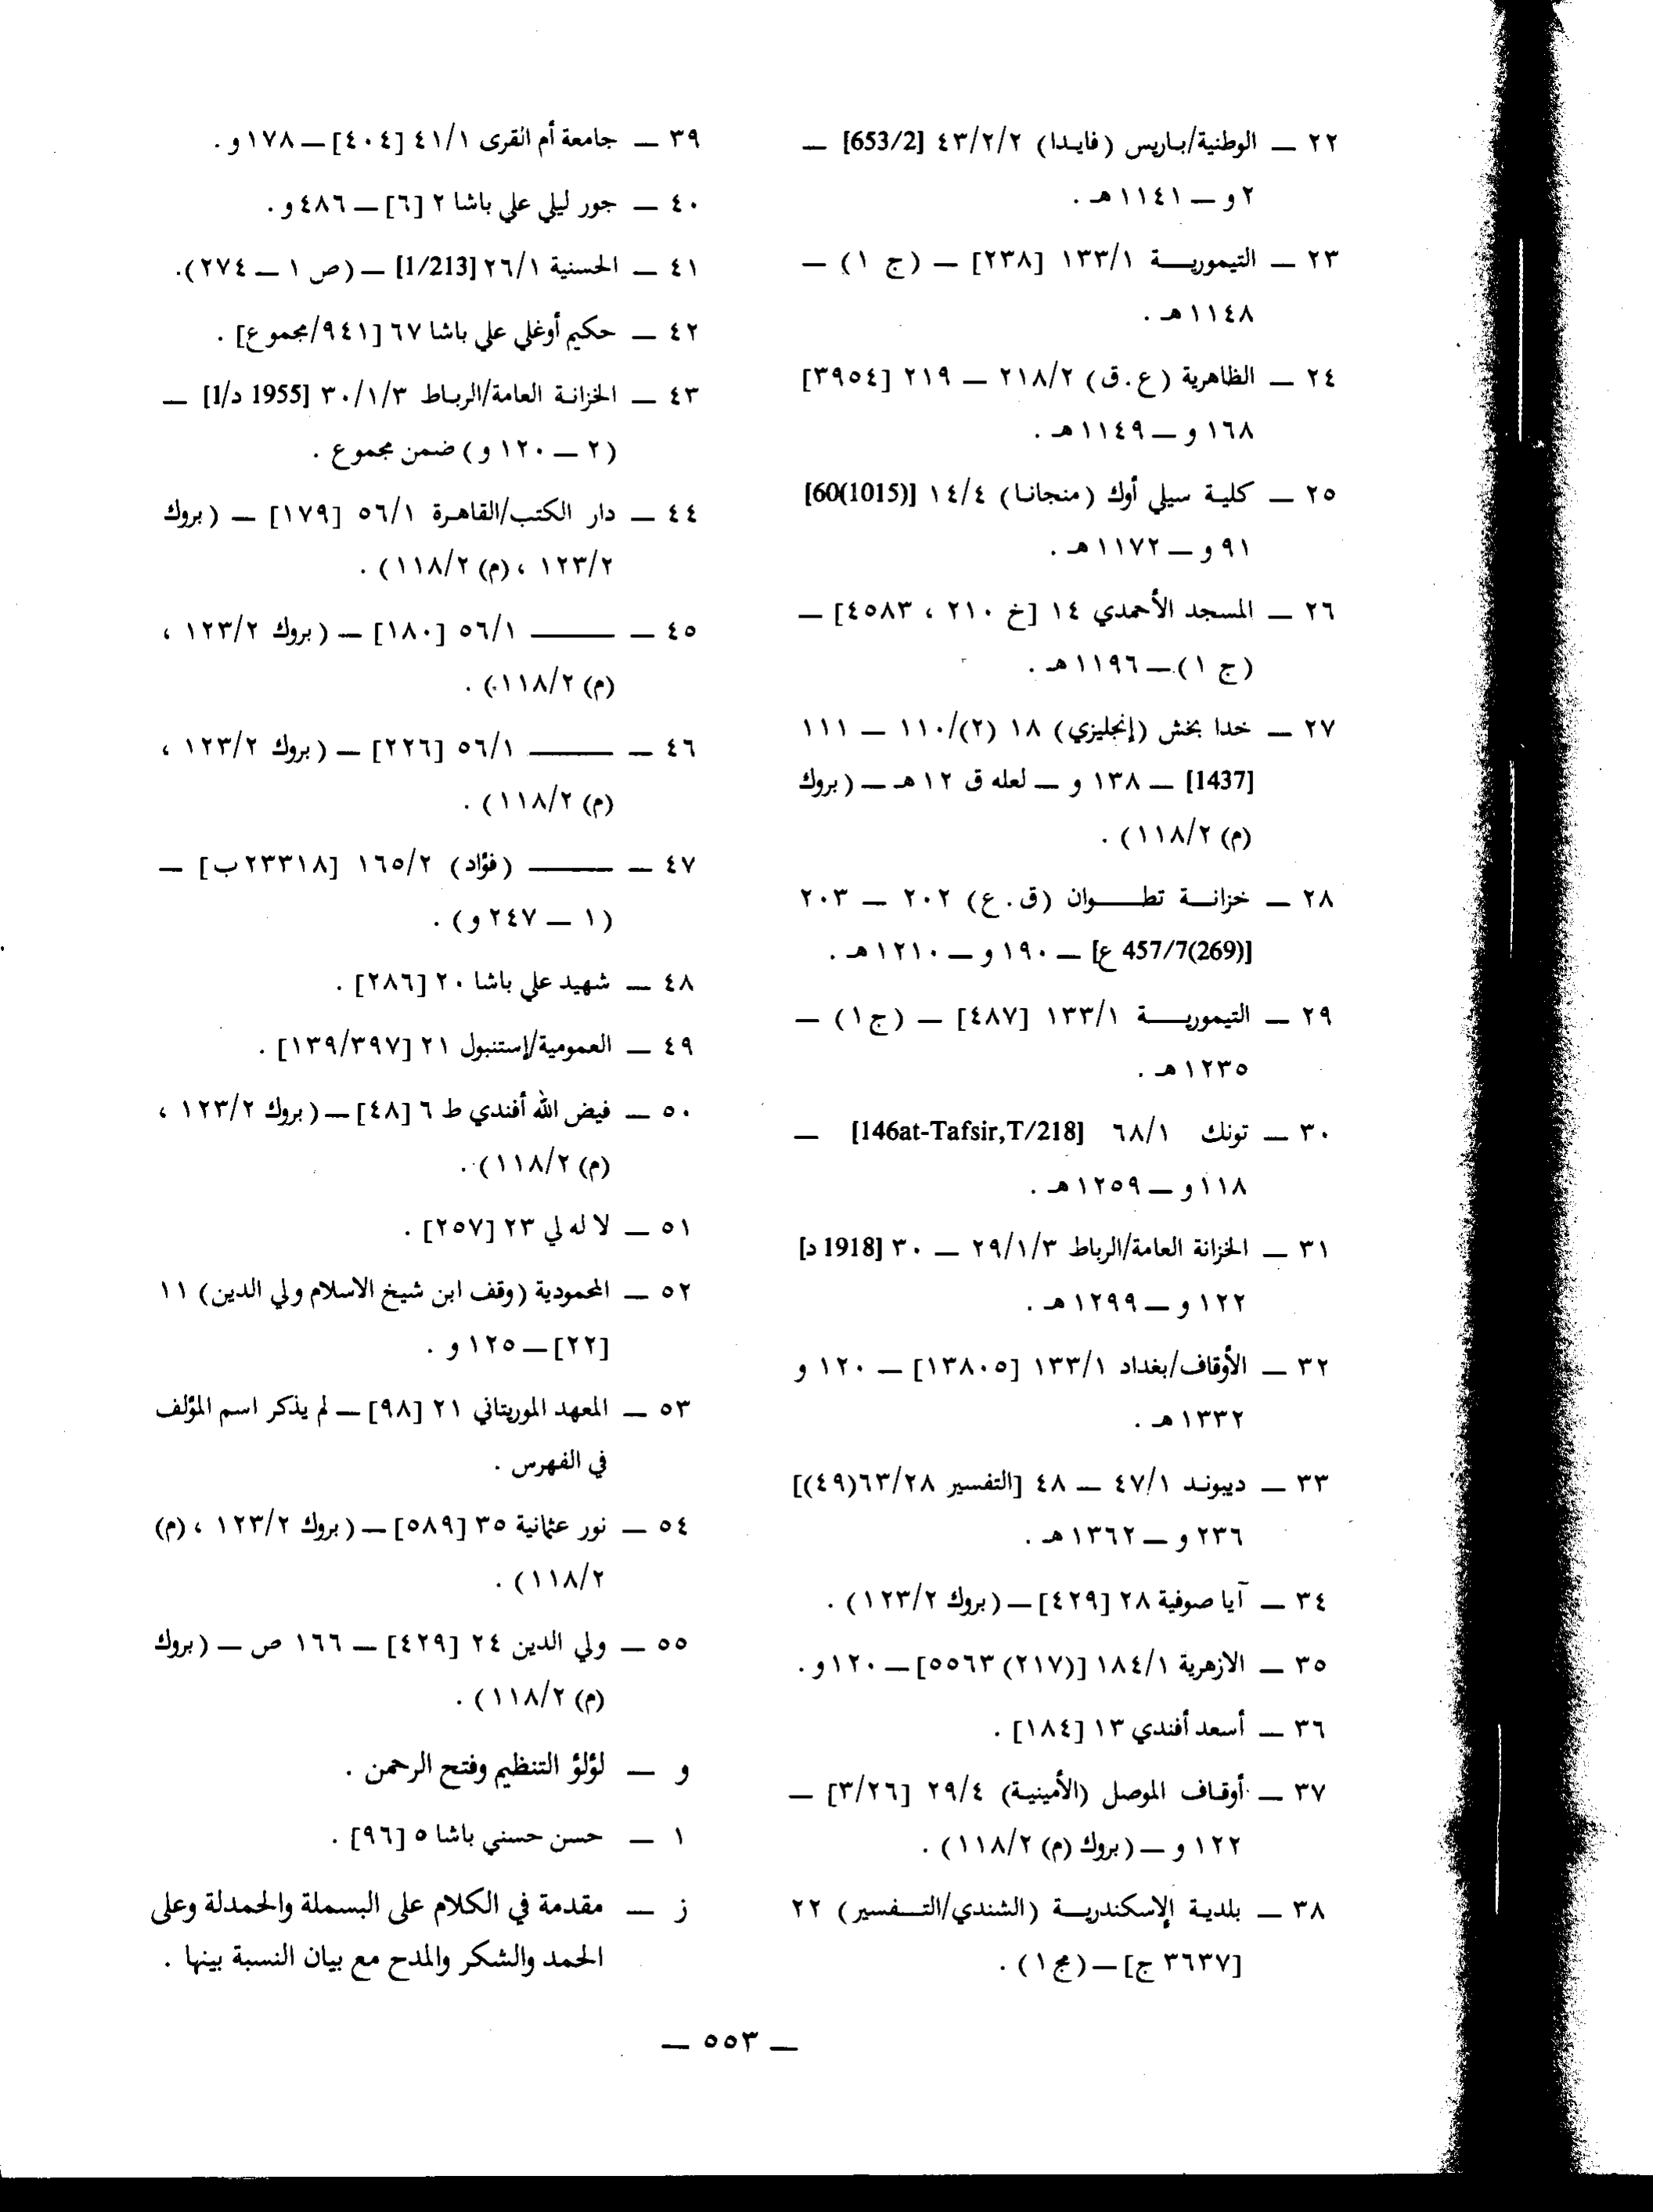 ٢٢ — الوطنية/باريس (فايدا) ٤٣/٢/٢ [653/2] —
٢ و — ١١٤١ هـ .
٢٣ — التيمورية ١٣٣/١ [٢٣٨] — (ج ١) —
١١٤٨ هـ .
٢٤ — الظاهرية (ع.ق) ٢١٨/٢ — ٢١٩ [٣٩٥٤]
١٦٨ و — ١١٤٩ هـ .
٢٥ — كلية سيلي أوك (منجانا) ١٤/٤ [60(1015)]
٩١ و — ١١٧٢ هـ .
٢٦ — المسجد الأحمدي ١٤ [خ ٢١٠ ، ٤٥٨٣] —
(ج ١) — ١١٩٦ هـ .
٢٧ — خدا بخش (إنجليزي) ١٨ (٢)/١١٠ — ١١١
[1437] — ١٣٨ و — لعله ق ١٢ هـ — (بروك
(م) ١١٨/٢) .
٢٨ — خزانة تطوان (ق.ع) ٢٠٢ — ٢٠٣
[457/7(269) ع] — ١٩٠ و — ١٢١٠ هـ .
٢٩ — التيمورية ١٣٣/١ [٤٨٧] — (ج١) —
١٢٣٥ هـ .
٣٠ — تونك ٦٨/١ [146at-Tafsir,T/218] —
١١٨و — ١٢٥٩ هـ .
٣١ — الخزانة العامة/الرباط ٢٩/١/٣ — ٣٠ [1918 د]
١٢٢ و — ١٢٩٩ هـ .
٣٢ — الأوقاف/بغداد ١٣٣/١ [١٣٨٠٥] — ١٢٠ و
١٣٣٢ هـ .
٣٣ — ديبوند ٤٧/١ — ٤٨ [التفسير ٦٣/٢٨(٤٩)]
٢٣٦ و — ١٣٦٢ هـ .
٣٤ — آيا صوفية ٢٨ [٤٢٩] — (بروك ١٢٣/٢) .
٣٥ — الازهرية ١٨٤/١ [(٢١٧) ٥٥٦٣] — ١٢٠و .
٣٦ — أسعد أفندي ١٣ [١٨٤] .
٣٧ — أوقاف الموصل (الأمينية) ٢٩/٤ [٣/٢٦] —
١٢٢ و — (بروك (م) ١١٨/٢) .
٣٨ — بلدية الإسكندرية (الشندي/التفسير) ٢٢
[٣٦٣٧ ج] — (مج ١) .
٣٩ — جامعة أم القرى ٤١/١ [٤٠٤] — ١٧٨و .
٤٠ — جور ليلي علي باشا ٢ [٦] — ٤٨٦ و .
٤١ — الحسنية ٢٦/١ [1/213] — (ص ١ — ٢٧٤).
٤٢ — حكيم أوغلي علي باشا ٦٧ [٩٤١/مجموع] .
٤٣ — الخزانة العامة/الرباط ٣٠/١/٣ [1955 د/1] —
(٢ — ١٢٠ و) ضمن مجموع .
٤٤ — دار الكتب/القاهرة ٥٦/١ [١٧٩] — (بروك
١٢٣/٢ ، (م) ١١٨/٢) .
٤٥ — ——— ٥٦/١ [١٨٠] — (بروك ١٢٣/٢ ،
(م) ١١٨/٢) .
٤٦ — ——— ٥٦/١ [٢٢٦] — (بروك ١٢٣/٢ ،
(م) ١١٨/٢) .
٤٧ — ——— (فؤاد) ١٦٥/٢ [٢٣٣١٨ب] —
(١ — ٢٤٧ و) .
٤٨ — شهيد علي باشا ٢٠ [٢٨٦] .
٤٩ — العمومية/إستنبول ٢١ [١٣٩/٣٩٧] .
٥٠ — فيض الله أفندي ط ٦ [٤٨] — (بروك ١٢٣/٢ ،
(م) ١١٨/٢) .
٥١ — لا له لي ٢٣ [٢٥٧] .
٥٢ — المحمودية (وقف ابن شيخ الاسلام ولي الدين) ١١
[٢٢] — ١٢٥ و .
٥٣ — المعهد الموريتاني ٢١ [٩٨] — لم يذكر اسم المؤلف
في الفهرس .
٥٤ — نور عثمانية ٣٥ [٥٨٩] — (بروك ١٢٣/٢ ، (م)
١١٨/٢) .
٥٥ — ولي الدين ٢٤ [٤٢٩] — ١٦٦ ص — (بروك
(م) ١١٨/٢) .
و — لؤلؤ التنظيم وفتح الرحمن .
١ — حسن حسني باشا ٥ [٩٦] .
ز — مقدمة في الكلام على البسملة والحمدلة وعلى
الحمد والشكر والمدح مع بيان النسبة بينها .
— ٥٥٣ —